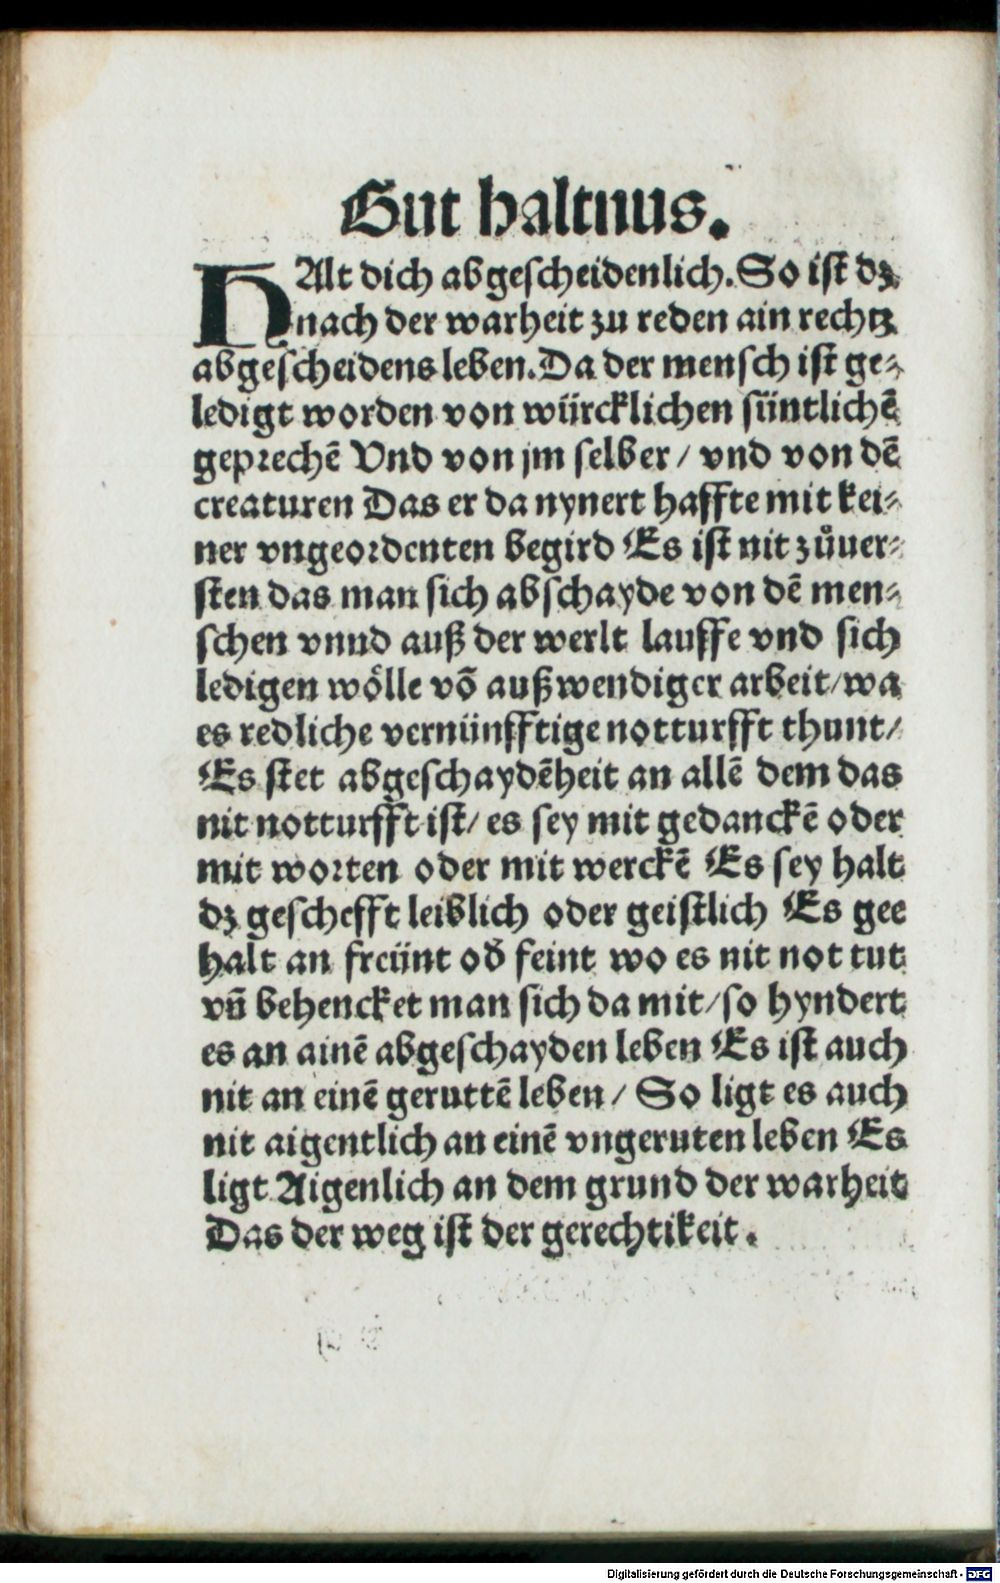 Gut haltnus.
HAlt dich abgescheidenlich. So ist dꝫ
nach der warheit zu reden ain rechtꝫ
abgescheidens leben. Da der mensch ist ge⸗
ledigt worden von würcklichen süntlichẽ
geprechẽ Vnd von jm selber / vnd von dẽ
creaturen Das er da nynert haffte mit kei⸗
ner vngeordenten begird Es ist nit zůuer⸗
sten das man sich abschayde von dẽ men⸗
schen vnnd auß der werlt lauffe vnd sich
ledigen wölle võ außwendiger arbeit / wa
es redliche vernünfftige notturfft thunt /
Es stet abgeschaydẽheit an allẽ dem das
nit notturfft ist / es sey mit gedanckẽ oder
mit worten oder mit werckẽ Es sey halt
dꝫ geschefft leiblich oder geistlich Es gee
halt an freünt od̕ feint wo es nit not tut
vñ behencket man sich da mit / so hyndert
es an ainẽ abgeschayden leben Es ist auch
nit an einẽ geruttẽ leben / So ligt es auch
nit aigentlich an einẽ vngeruten leben Es
ligt Aigenlich an dem grund der warheit
Das der weg ist der gerechtikeit.
Digitalisierung gefördert durch die Deutsche Forschungsgemeinschaft - DFG